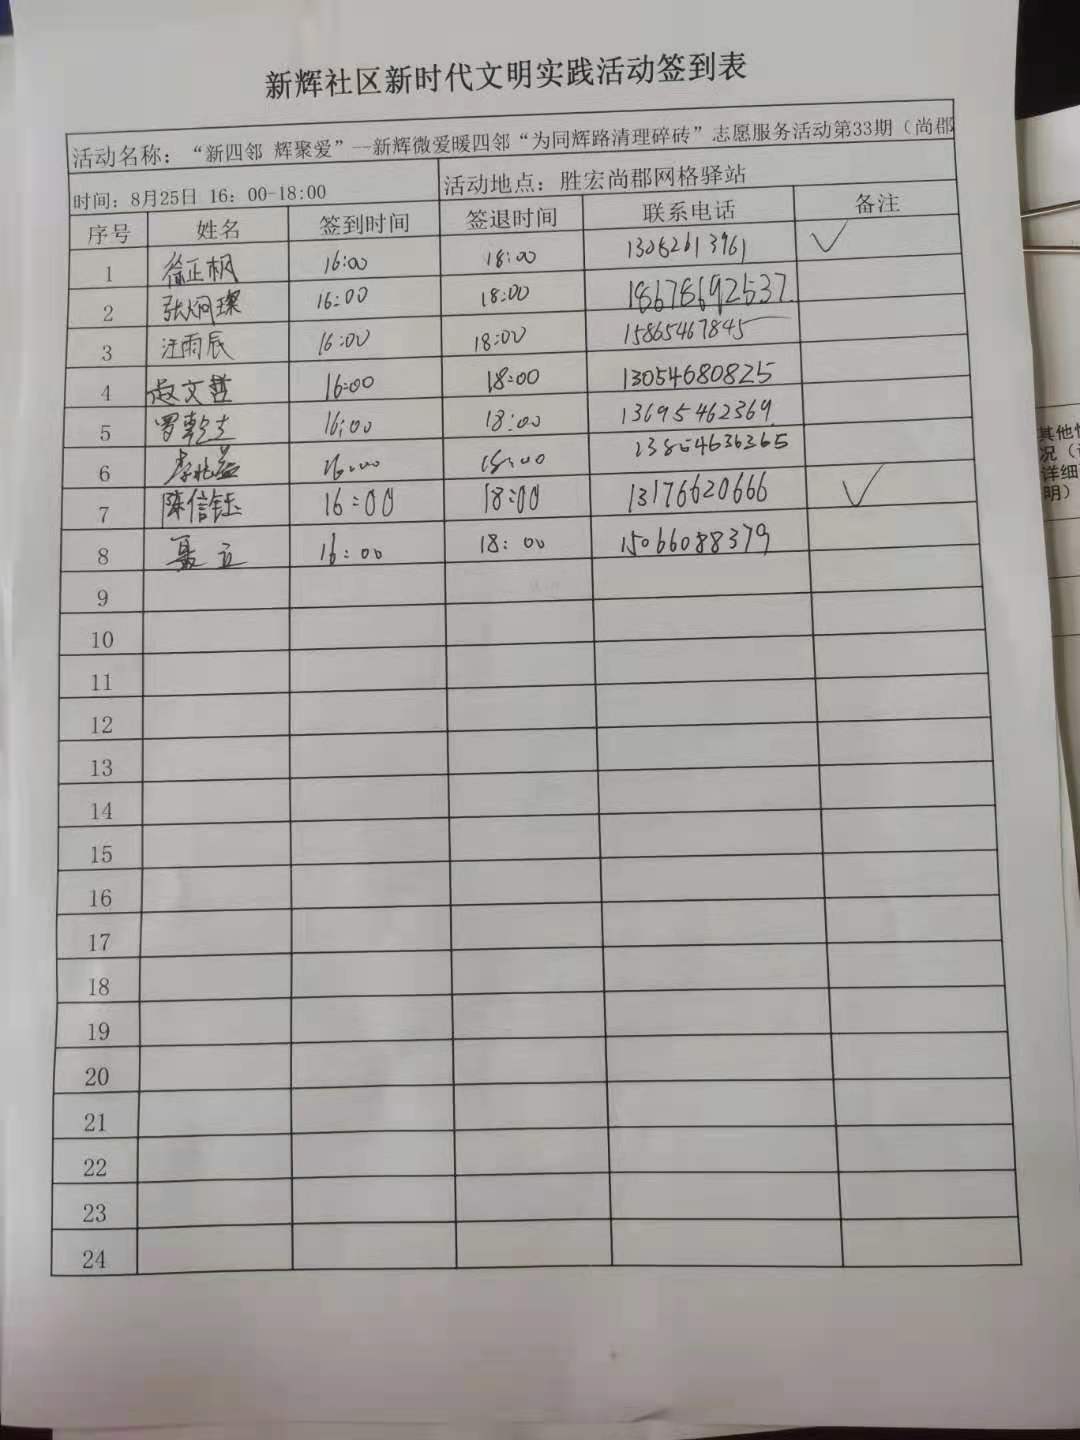 新辉社区新时代文明实践活动签到表
活动名称：“新四邻 辉聚爱”--新辉微爱暖四邻“为同辉路清理碎砖”志愿服务活动第33期（尚郡
时间：8月25日 16：00-18:00 活动地点：胜宏尚郡网格驿站
序号 姓名 签到时间 签退时间 联系电话 备注
1 徐正枫 16:00 18:00 13082613961 √
2 张炯璨 16:00 18:00 18678692537
3 汪雨辰 16:00 18:00 15865467845
4 文哲 16:00 18:00 13054680825
5 罗乾 16:00 18:00 13695462369
6 李兆 16:00 18:00 13864636365
7 陈信钰 16:00 18:00 13176620666 √
8 聂立 16:00 18:00 15066088379
9
10
11
12
13
14
15
16
17
18
19
20
21
22
23
24
其他情
况（
详细
明）